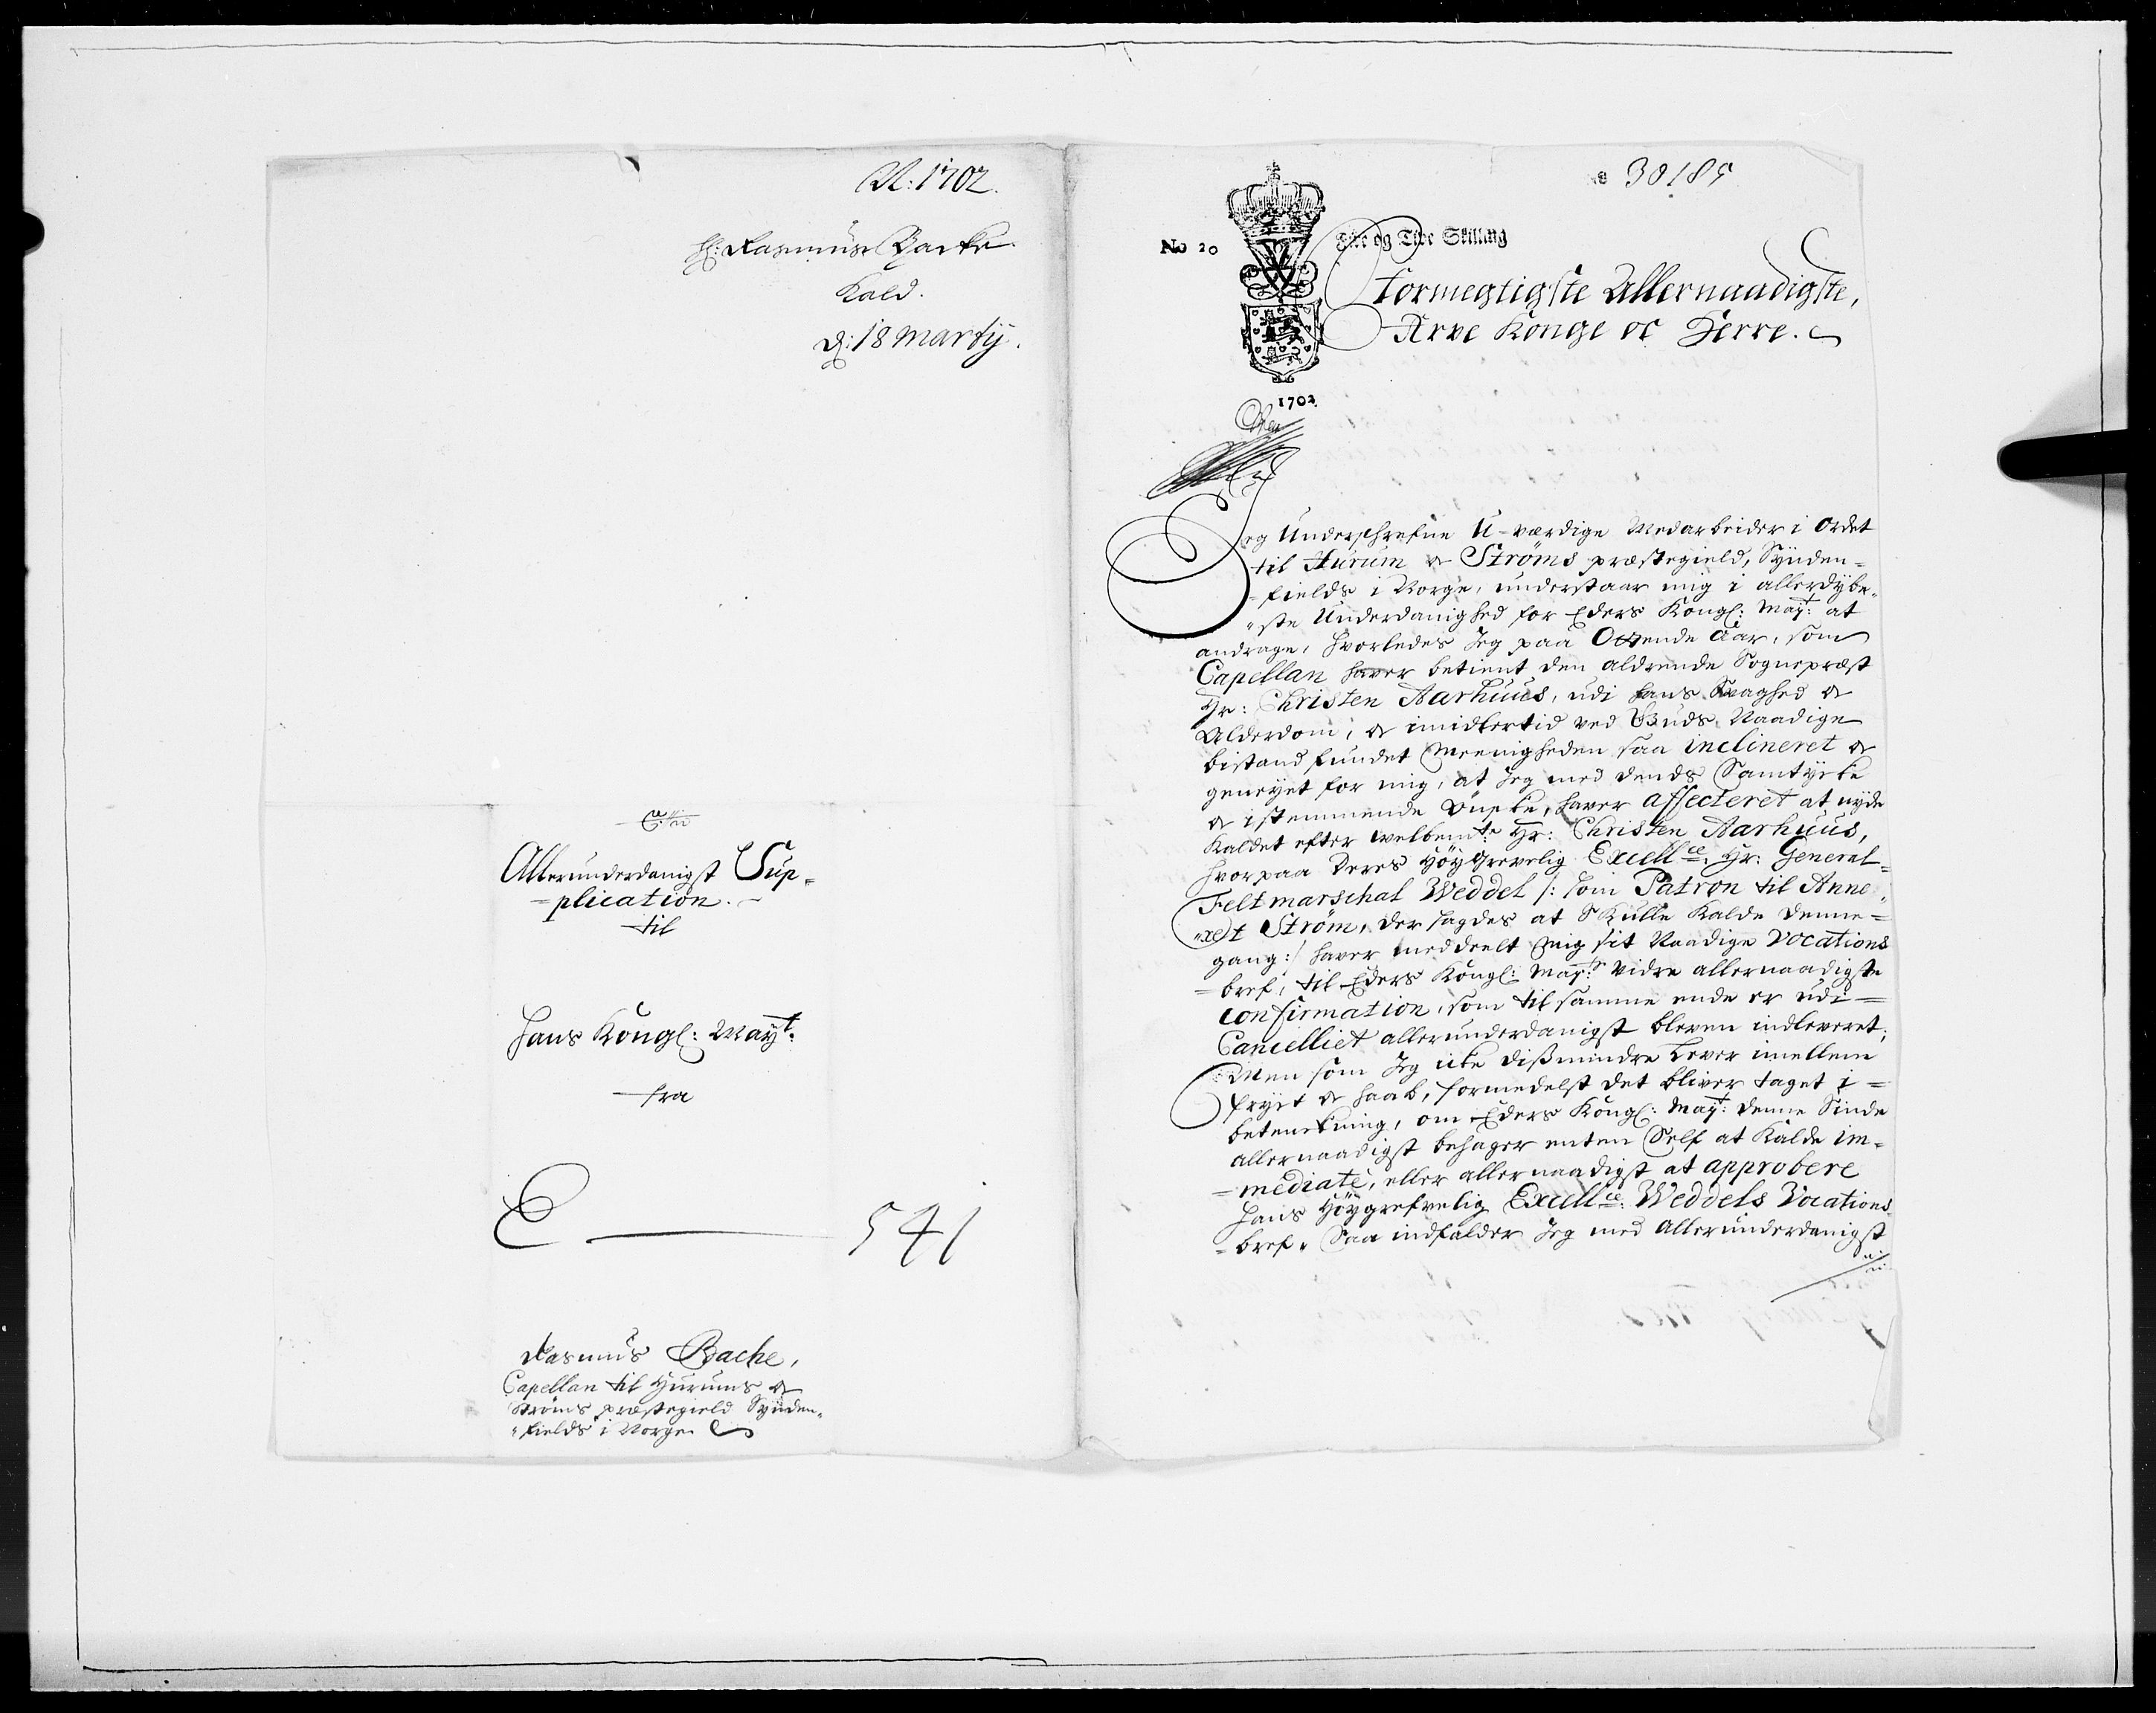 N: 1702.
Hr: Rasmus Backe
Kald.
d: 18 Martij.
Allerunderdanigst Sup=
=plication.
til
Hans Kongl: Mayt:
fra
E 541
Rasmus Bache,
Capellan til Hurums &
Ströms præstegield Synden=
=fields i Norge
30185
No 20
Fire og Tive Skilling
Stormegtigste Allernaadigste,
Arve Konge oc Herre.
1702
Jeg Underschrefne U-værdige Medarbeider i Ordet
til Hurum & Ströms præstegield, Synden=
=fields i Norge, understaar mig i allerdybe=
=ste Underdanighed for Eders Kongl: Mayt: at
andrage, hvorledes Jeg paa Ottende Aar, som
Capellan haver betient den aldrende Sognepræst
Hr: Christen Aarhuus, udi hans Svaghed &
Alderdom, & imidlertid ved Guds Naadige
bistand fundet Meenigheden saa inclineret &
geneyet for mig, at Jeg med dends Samtycke
& istemmende Önske, haver affecteret at nyde
Kaldet efter welbemte Hr: Christen Aarhuus,
hvorpaa Deres HöyGrevelig Excellce: Hr: General=
Feltmarschal Weddel /: som Patron til Anne=
=xet Ström, der sagdes at Skulle Kalde denne=
gang :/ haver meddeelt mig sit Naadige Vocations
=bref, til Eders Kongl: Mayts: vidre allernaadigste
confirmation, som til samme ende er udi=
Cancelliet allerunderdanigst bleven indleveret;
Men som Jeg icke dissmindre lever imellem
fryct & haab, formedelst det bliver taget i=
betenckning, om Eders Kongl: Mayt: denne Sinde
allernaadigst behager enten Self at Kalde im=
=mediatè, eller allernaadigst at approbere
Hans Höygrefvelig Excellce: Weddels Vocations
=bref. Saa indfalder Jeg med Allerunderdanigst